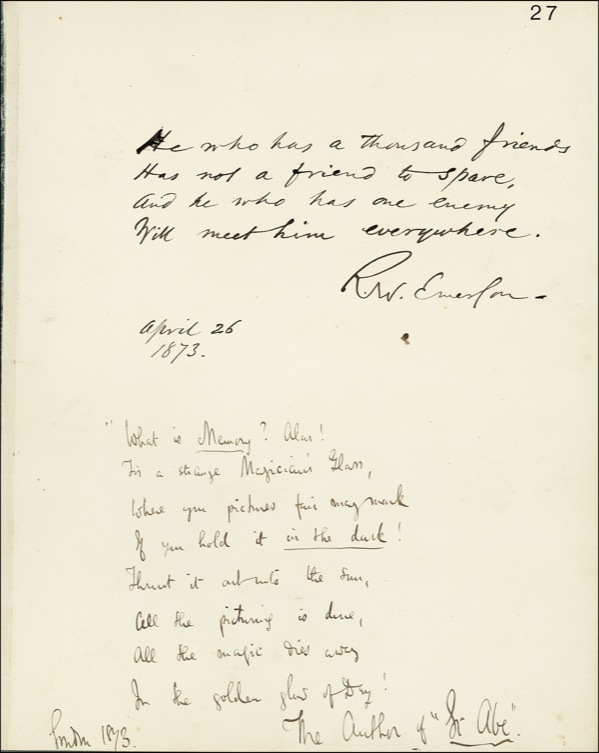 27
He who has a thousand friends
Has not a friend to spare,
And he who has one enemy
Will meet him everywhere.
R. W. Emerson -
April 26
1873.
"What is Memory? Alas!
'Tis a strange Magician's Glass,
Where you pictures fair may mark
If you hold it in the dark!
Thrust it out into the Sun,
All the picturing is done,
All the magic dies away
In the golden glow of Day!
The Author of "St. Abe".
London 1873.